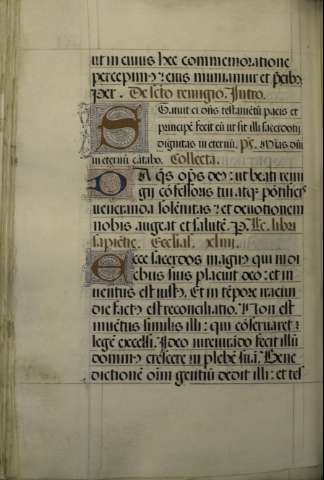 ut in cuius hec commemoratione
percepim⁹ : eius muniamur et p̄cib⁹
Per . De scto remigio. Intro.
Statuit ei dn̄s testamētū pacis et
principē fecit eū ut sit illi sacerdotij
dignitas in eternū. ps. Mias dn̄i
in eternū cātabo. Collecta.
Da q̄s op̄s de⁹ : ut beati remi
gij cōfessoris tui atq̄ pōtificis
veneranda solēnitas : et deuotionem
nobis augeat et salutē. p. Lc. libri
sapiētie. Ecclīasti. xliiii.
Ecce sacerdos magn⁹ qui in di
ebus suis placuit deo : et in
uentus est iust⁹. Et in tēpore iracun
die fact⁹ est reconciliatio. Non est
inuētus similis illi : qui cōseruaret
legē excelsi. Ideo iureiurādo fecit illū
domin⁹ crescere in plebē suā. Bene
dictionē oīm gentiū dedit illi : et tes